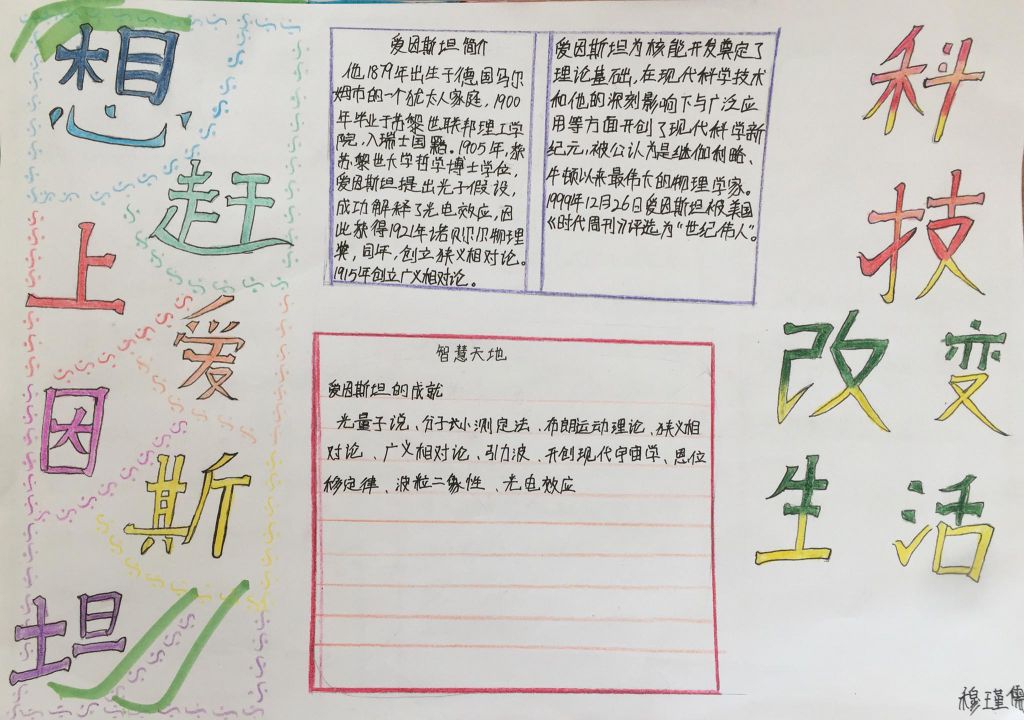 想
赶
上
爱
因
斯
坦
爱因斯坦简介
他,1879年出生于德国乌尔
姆市的一个犹太人家庭,1900
年毕业于苏黎世联邦理工学
院,入瑞士国籍。1905年,获
苏黎世大学哲学博士学位,
爱因斯坦提出光子假设,
成功解释了光电效应,因
此获得1921年诺贝尔物理
奖,同年,创立狭义相对论。
1915年创立广义相对论。
爱因斯坦为核能开发奠定了
理论基础,在现代科学技术
和他的深刻影响下与广泛应
用等方面开创了现代科学新
纪元,被公认为是继伽利略、
牛顿以来最伟大的物理学家。
1999年12月26日爱因斯坦被美国
《时代周刊》评选为“世纪伟人”。
智慧天地
爱因斯坦的成就
光量子说、分子大小测定法、布朗运动理论、狭义相
对论、广义相对论、引力波、开创现代宇宙学、恩位
移定律、波粒二象性、光电效应
科
技
改变
生活
穆瑾儒